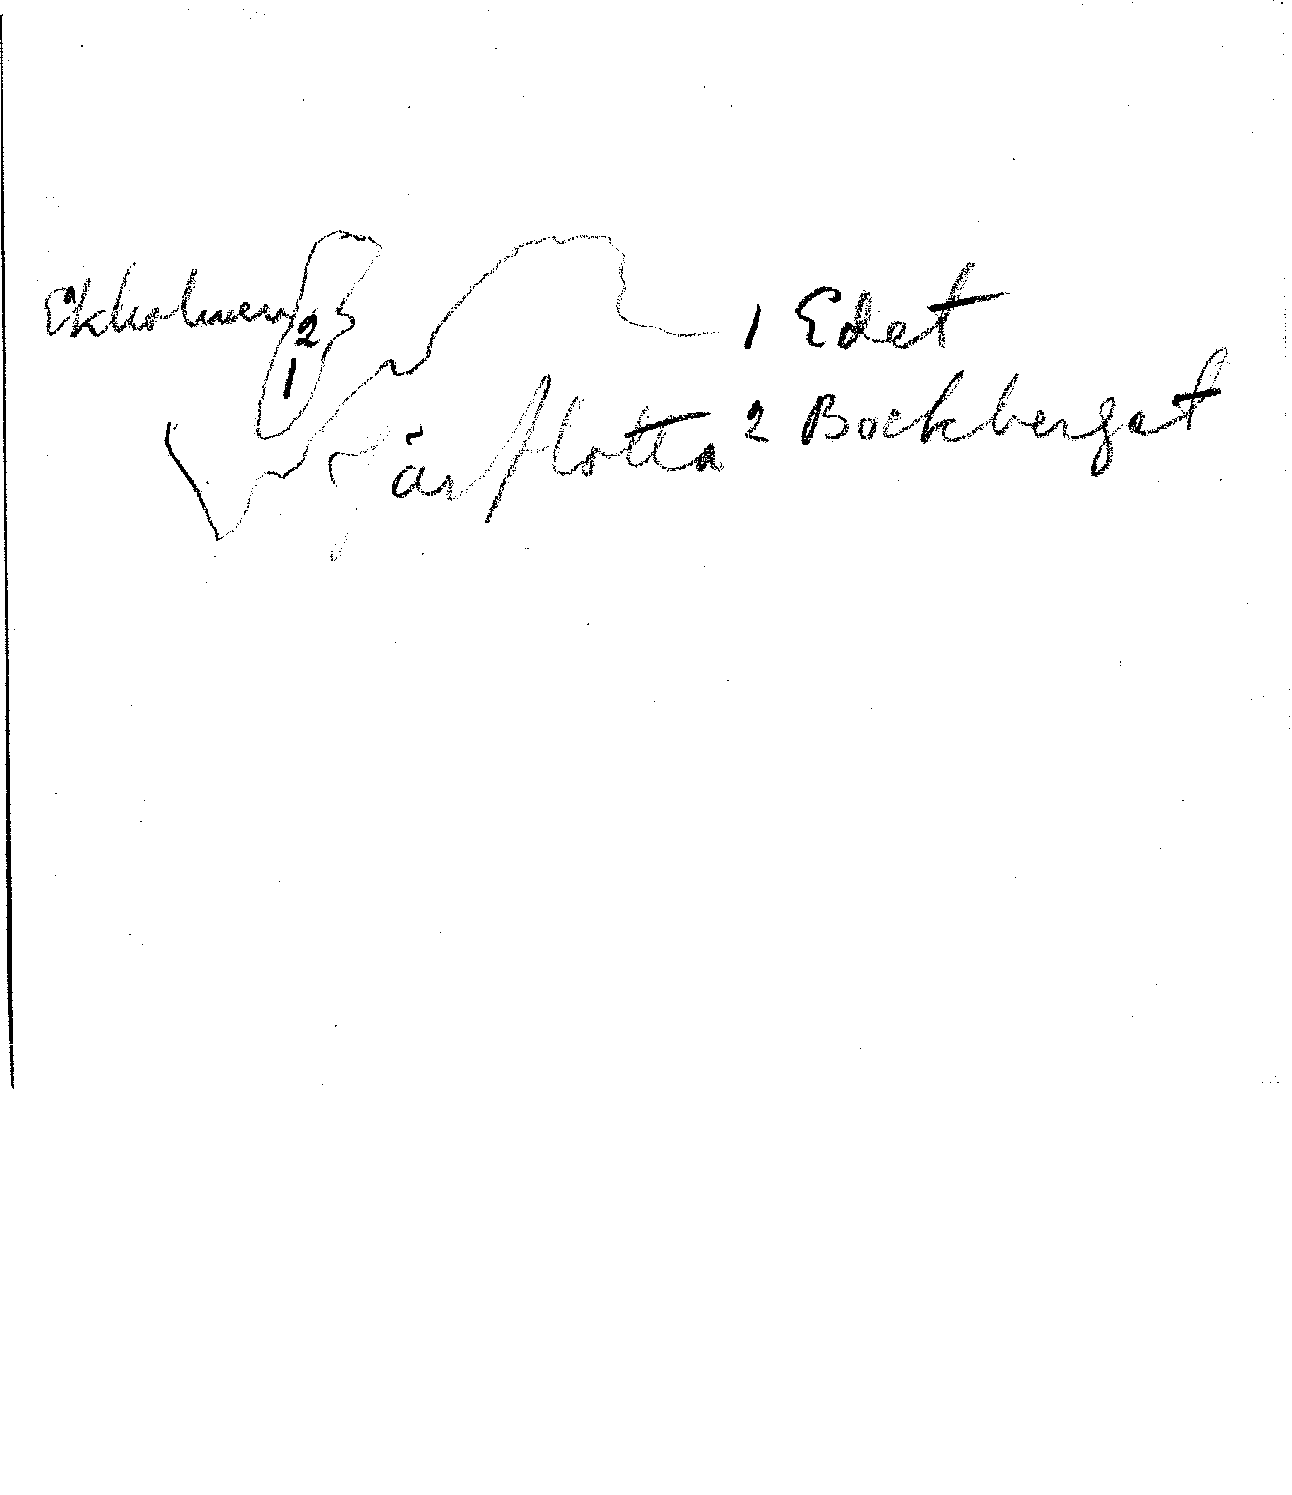 Ekholmen
2
1
1 Edet
Tärflotta
2 Bockberget